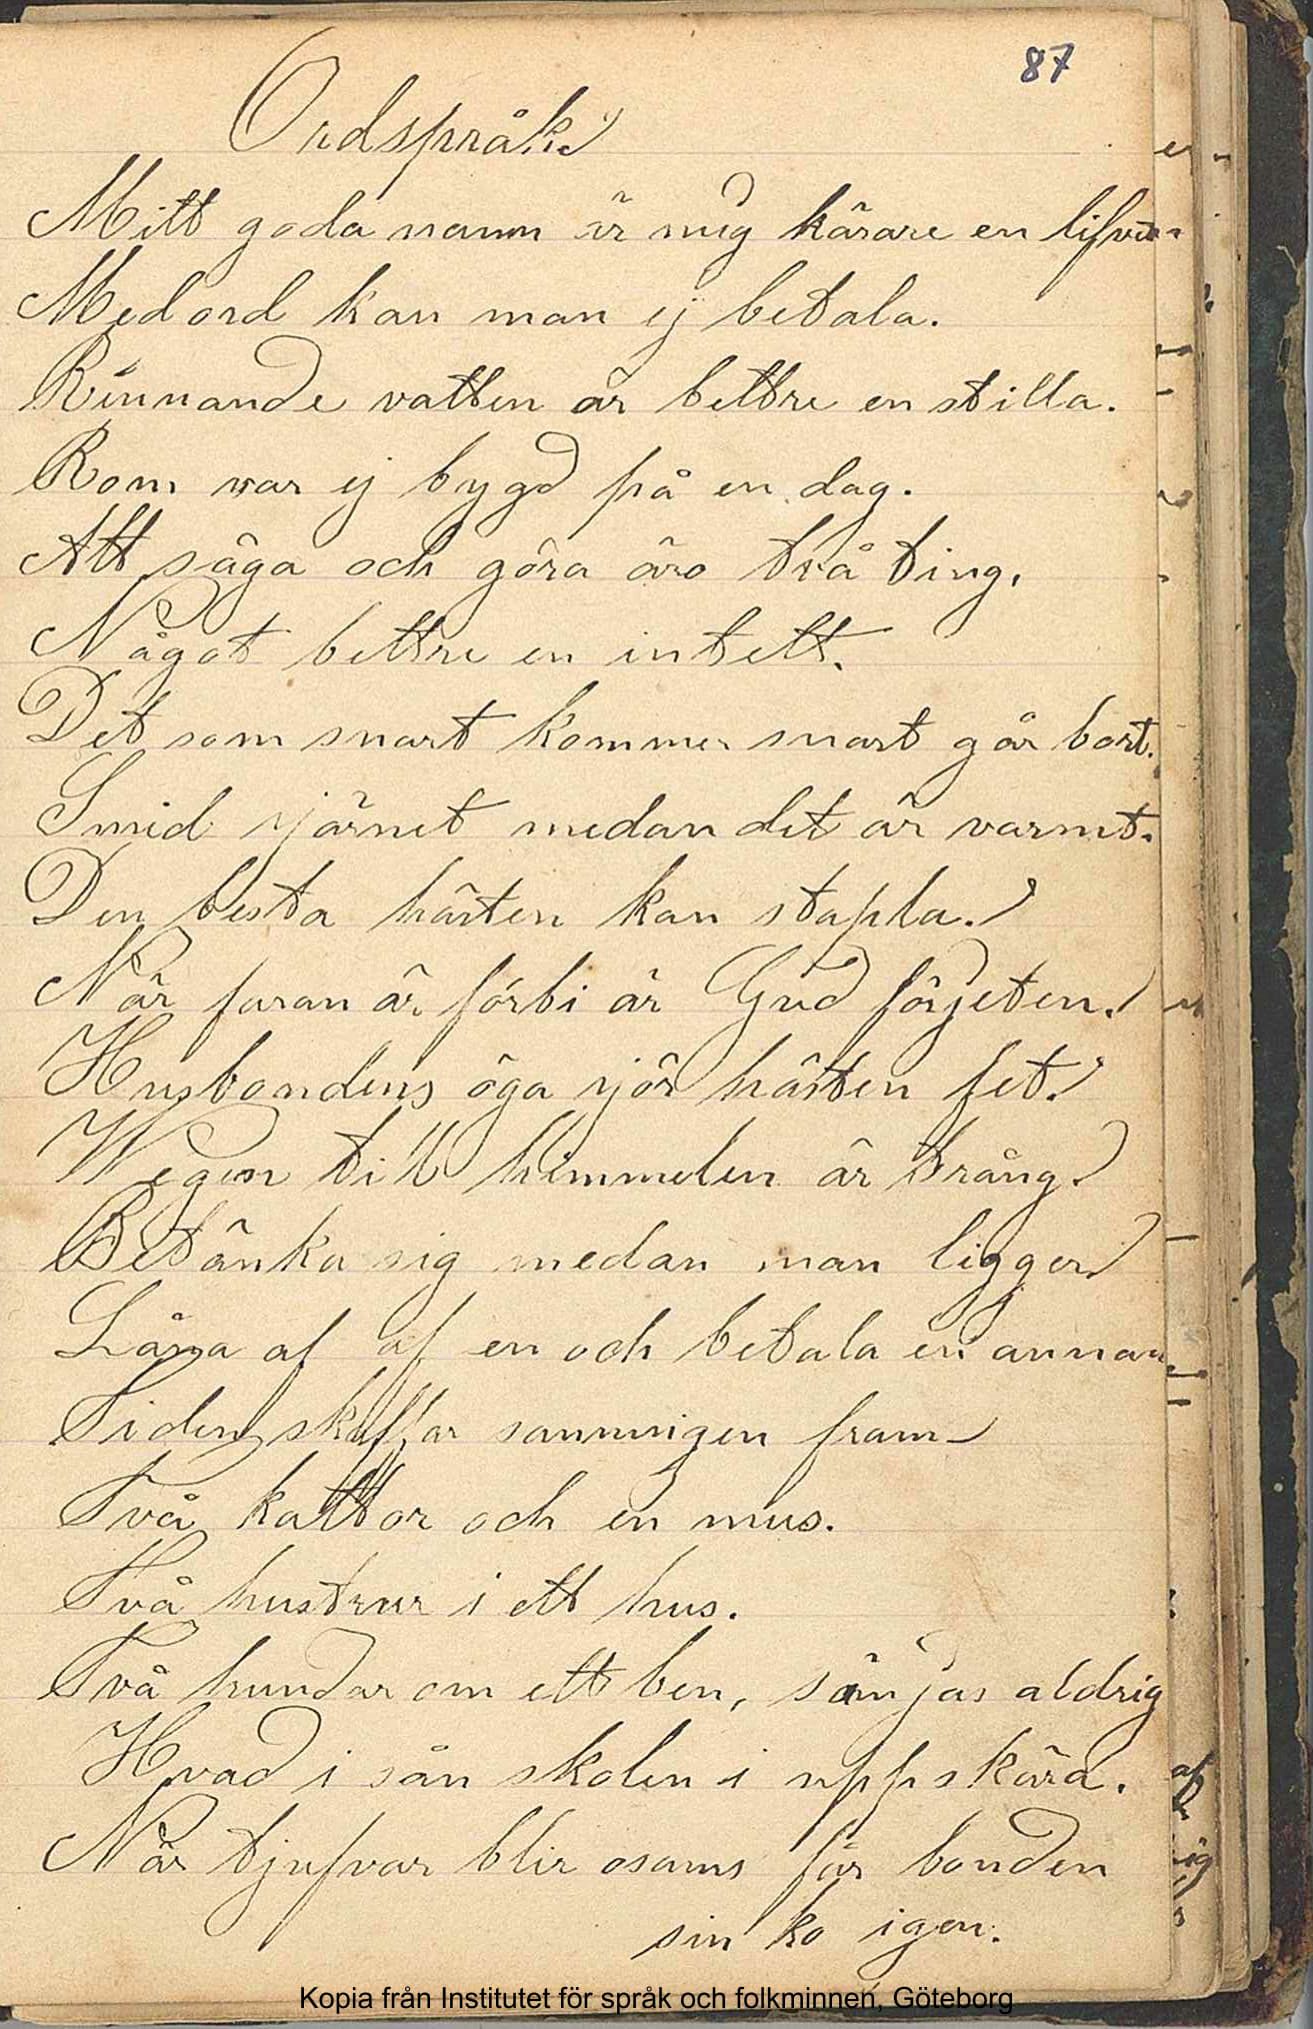 87
Ordspråk
Mitt goda namn är mig kärare en lifvet
Med ord kan man ej betala.
Rinnande vatten är bettre en stilla.
Rom var ej bygd på en dag.
Att säga och göra äro två ting.
Något bettre en intett.
Det som snart kommer snart går bort.
Smid järnet medan det är varmt.
Den besta hästen kan stapla.
När faran är förbi är Gud förjeten.
Husbondens öga gjör hästen fet.
Wegen till himmelen är trång.
Betänka sig medan man ligger
Låna af af en och betala en annan
Tiden skaffar sanningen fram
Två kattor och en mus.
Två hustrur i ett hus.
Två hundar om ett ben, sämjas aldrig
Hvad i sån skolen i uppskära.
När tjufvar blir osams får bonden
sin ko igen.
Kopia från Institutet för språk och folkminnen, Göteborg